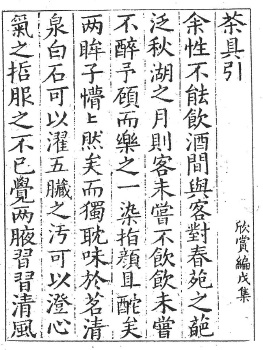 茶具引
欣賞編戊集
余性不能飲酒間與客對春苑之葩
泛秋湖之月則客未嘗不飲飲未嘗
不醉予顧而樂之一染指顔且酡矣
两眸子懵〻然矣而獨耽味於茗清
泉白石可以濯五臓之汚可以澄心
氣之㧞服之不已覺两腋習習清風